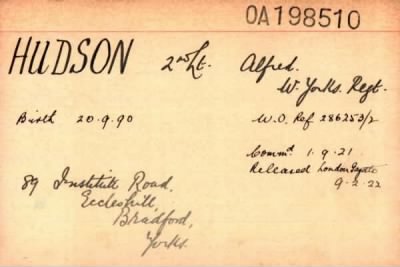 OA198510
HUDSON 2nd Lt. Alfred.
W. Yorks. Regt.
Birth 20.9.90 W.O. Ref 286253/2
Commd 1.9.21
Released London Gazette
9-2-22
89 Institute Road,
Eccleshill,
Bradford,
Yorks.